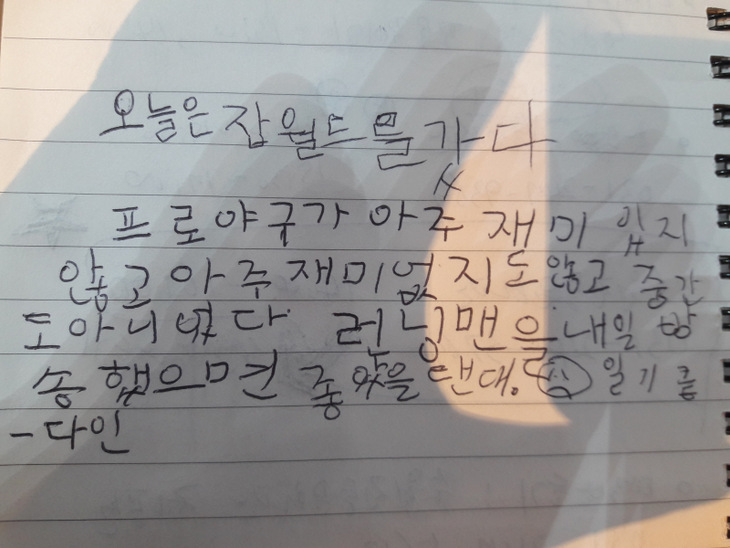 오늘은 잡월드를 갔다
프로야구가 아주 재미 있지
않고 아주 재미없지도 않고 중간
도 아니였다 런닝맨을 내일 방
송 했으면 좋았을 탠대. 일기 끝
- 다인